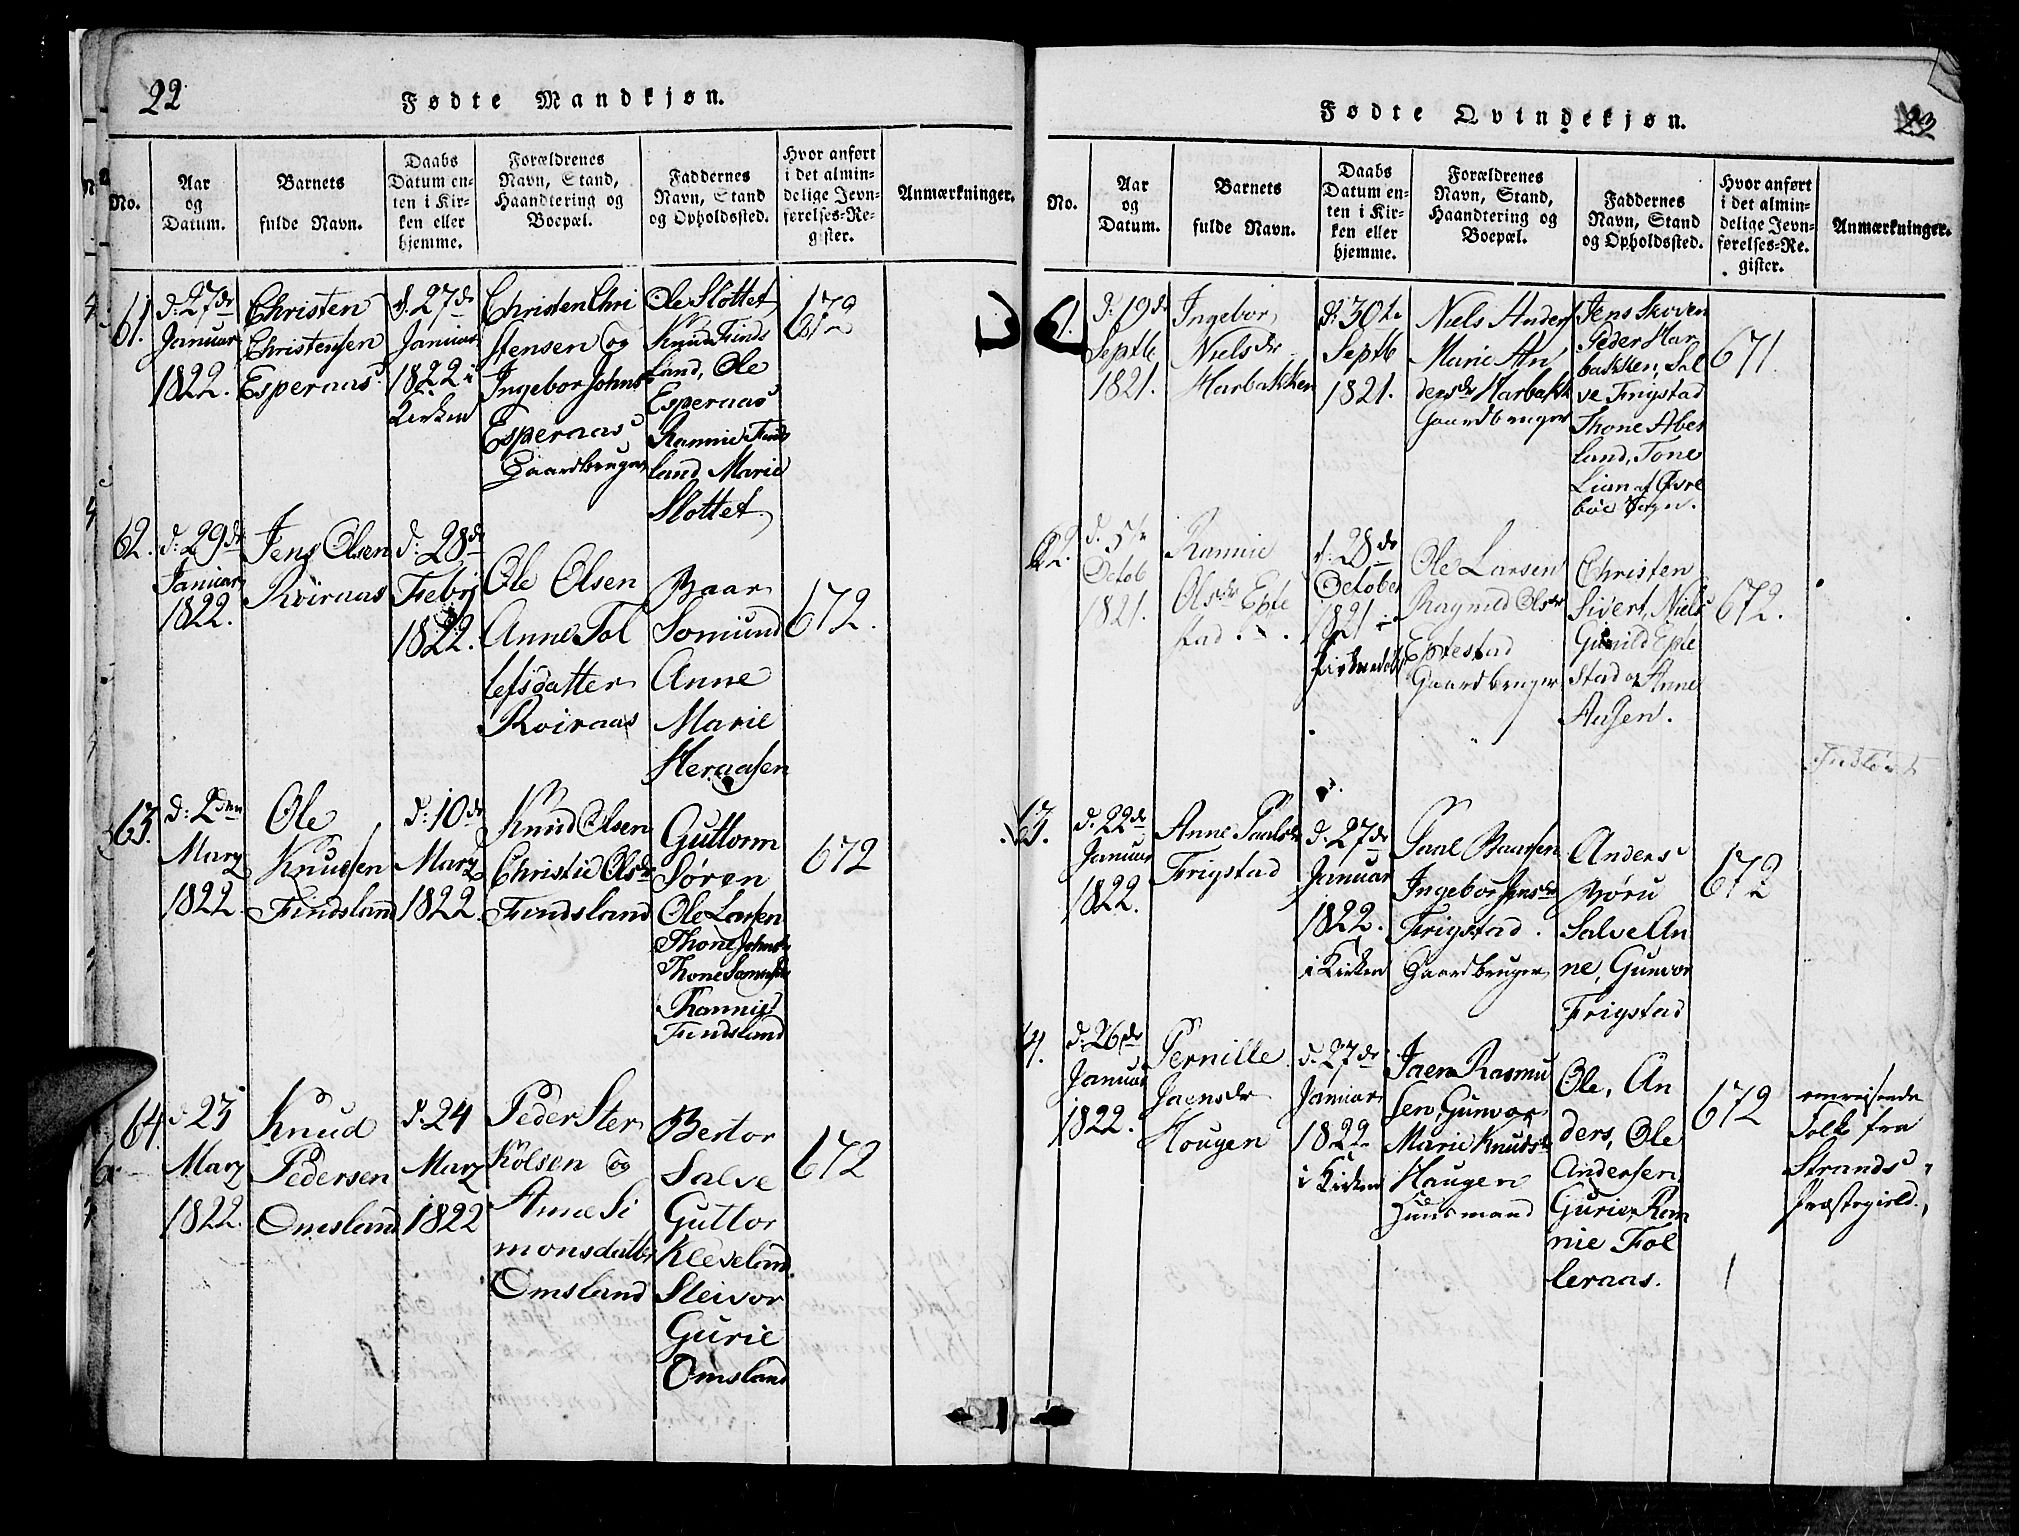 22
Fødte Mandkjøn.
No.
Aar
og
Datum.
Barnets
fulde Navn.
Daabs
Datum en-
ten i Kir-
ken eller
hjemme.
Forældrenes
Navn, Stand,
Haandtering og
Boepæl.
Faddernes
Navn, Stand
og Opholdssted.
Hvor anført
i det almin-
delige Jevn-
førelses-Re-
gister.
Anmærkninger.
61.
d: 27de
Januar
1822.
Christen
Christensen
Esperaas
d. 27de
Januar
1822 i
Kirken
Christen Chri
stensen og
Ingebor Johns
Esperaas
Gaardbruger
Ole Slottet
Knud Finds
land, Ole
Esperaas
Rannie Finds
land, Marie
Slottet
672
62.
d: 29de
Januar
1822.
Jens Olsen
Roiraas
d: 28de
Febr
1822.
Ole Olsen
Anne Tol
lefsdatter
Roiraas
Baar
Somund
Anne
Marie
Heraasen
672.
63.
d: 2den
Marz
1822.
Ole
Knudsen
Findsland
d: 10de
Marz
1822.
Knud Olsen
Christie Olsdr
Findsland
Guttorm
Søren
Ole Larsen
Thone Johnsdr
Thone
Rannie
Findsland
672
64.
d 23
Marz
1822.
Knud
Pedersen
Omsland
d. 24
Marz
1822
Peder Ster
kolsen og
Anne Si
monsdatter
Omsland
Bertor
Salve
Guttor
Kleveland
Steivor
Gurie
Omsland
672
23
Fødte Qvindekjøn.
No.
Aar
og
Datum.
Barnets
fulde Navn.
Daabs
Datum en-
ten i Kir-
ken eller
hjemme.
Forældrenes
Navn, Stand,
Haandtering og
Boepæl.
Faddernes
Navn, Stand
og Opholdssted.
Hvor anført
i det almin-
delige Jevn-
førelses-Re-
gister.
Anmærkninger.
61.
d: 19de
Septb
1821.
Ingebor
Nielsdr
Harbakken
d: 30te
Septb
1821.
Niels Anders
Marie An
dersdr Harbakk
Gaardbruger
Jens Skoven
Peder Har
bakken, Sal
ve Frigstad
Thone Aber
land, Tone
Lian af Øvre
boe Sogn.
671
62.
d. 5te
Octob
1821.
Rannie
Olsdr Epte
stad
d: 28de
October
1821 i
Ole Larsen
Ragnild Olsdr
Eptestad
Gaardbruger
Christen
Sivert, Niels
Gunild Epte
stad og Anne
Aasen.
672.
63.
d. 22de
Januar
1822.
Anne Paalsdr
Frigstad
d: 27de
Januar
1822.
i Kirken
Paal Baarsen
Ingebor Jensdr
Frigstad.
Gaardbruger
Anders
Børu
Salve An
ne, Gunvor
Frigstad
672
4.
d: 26de
Januar
1822.
Pernille
Jaensdr
Hougen
d. 27de
Januar
1822.
i Kirken
Jaen Rasmu
sen, Gunvor
Marie Knudsdr
Haugen
Huusmand
Ole, An
ders, Ole
Andersen,
Gurie, Ran
nie Fol
leraas.
672
omreisende
Folk fra
Strands
Præstegield.